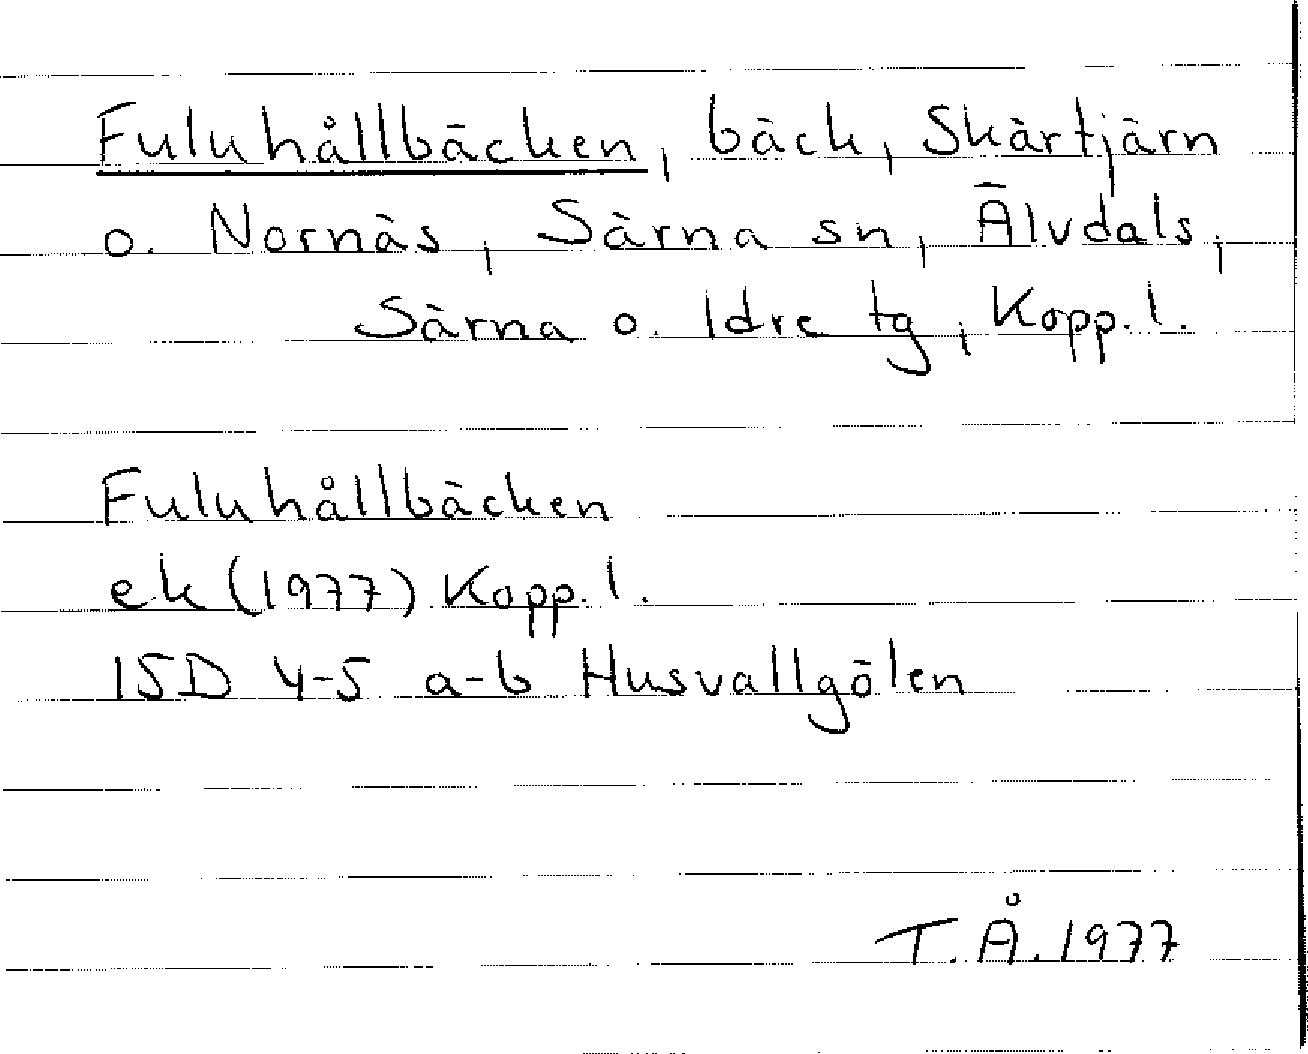 Fuluhållbäcken, bäck, Skärtjärn
o. Nornäs, Särna sn, Älvdals,
Särna o. Idre tg, Kopp.l.
Fuluhållbäcken
ek (1977) Kopp.l.
15D 4-5 a-b Husvallgölen
T.Å.1977